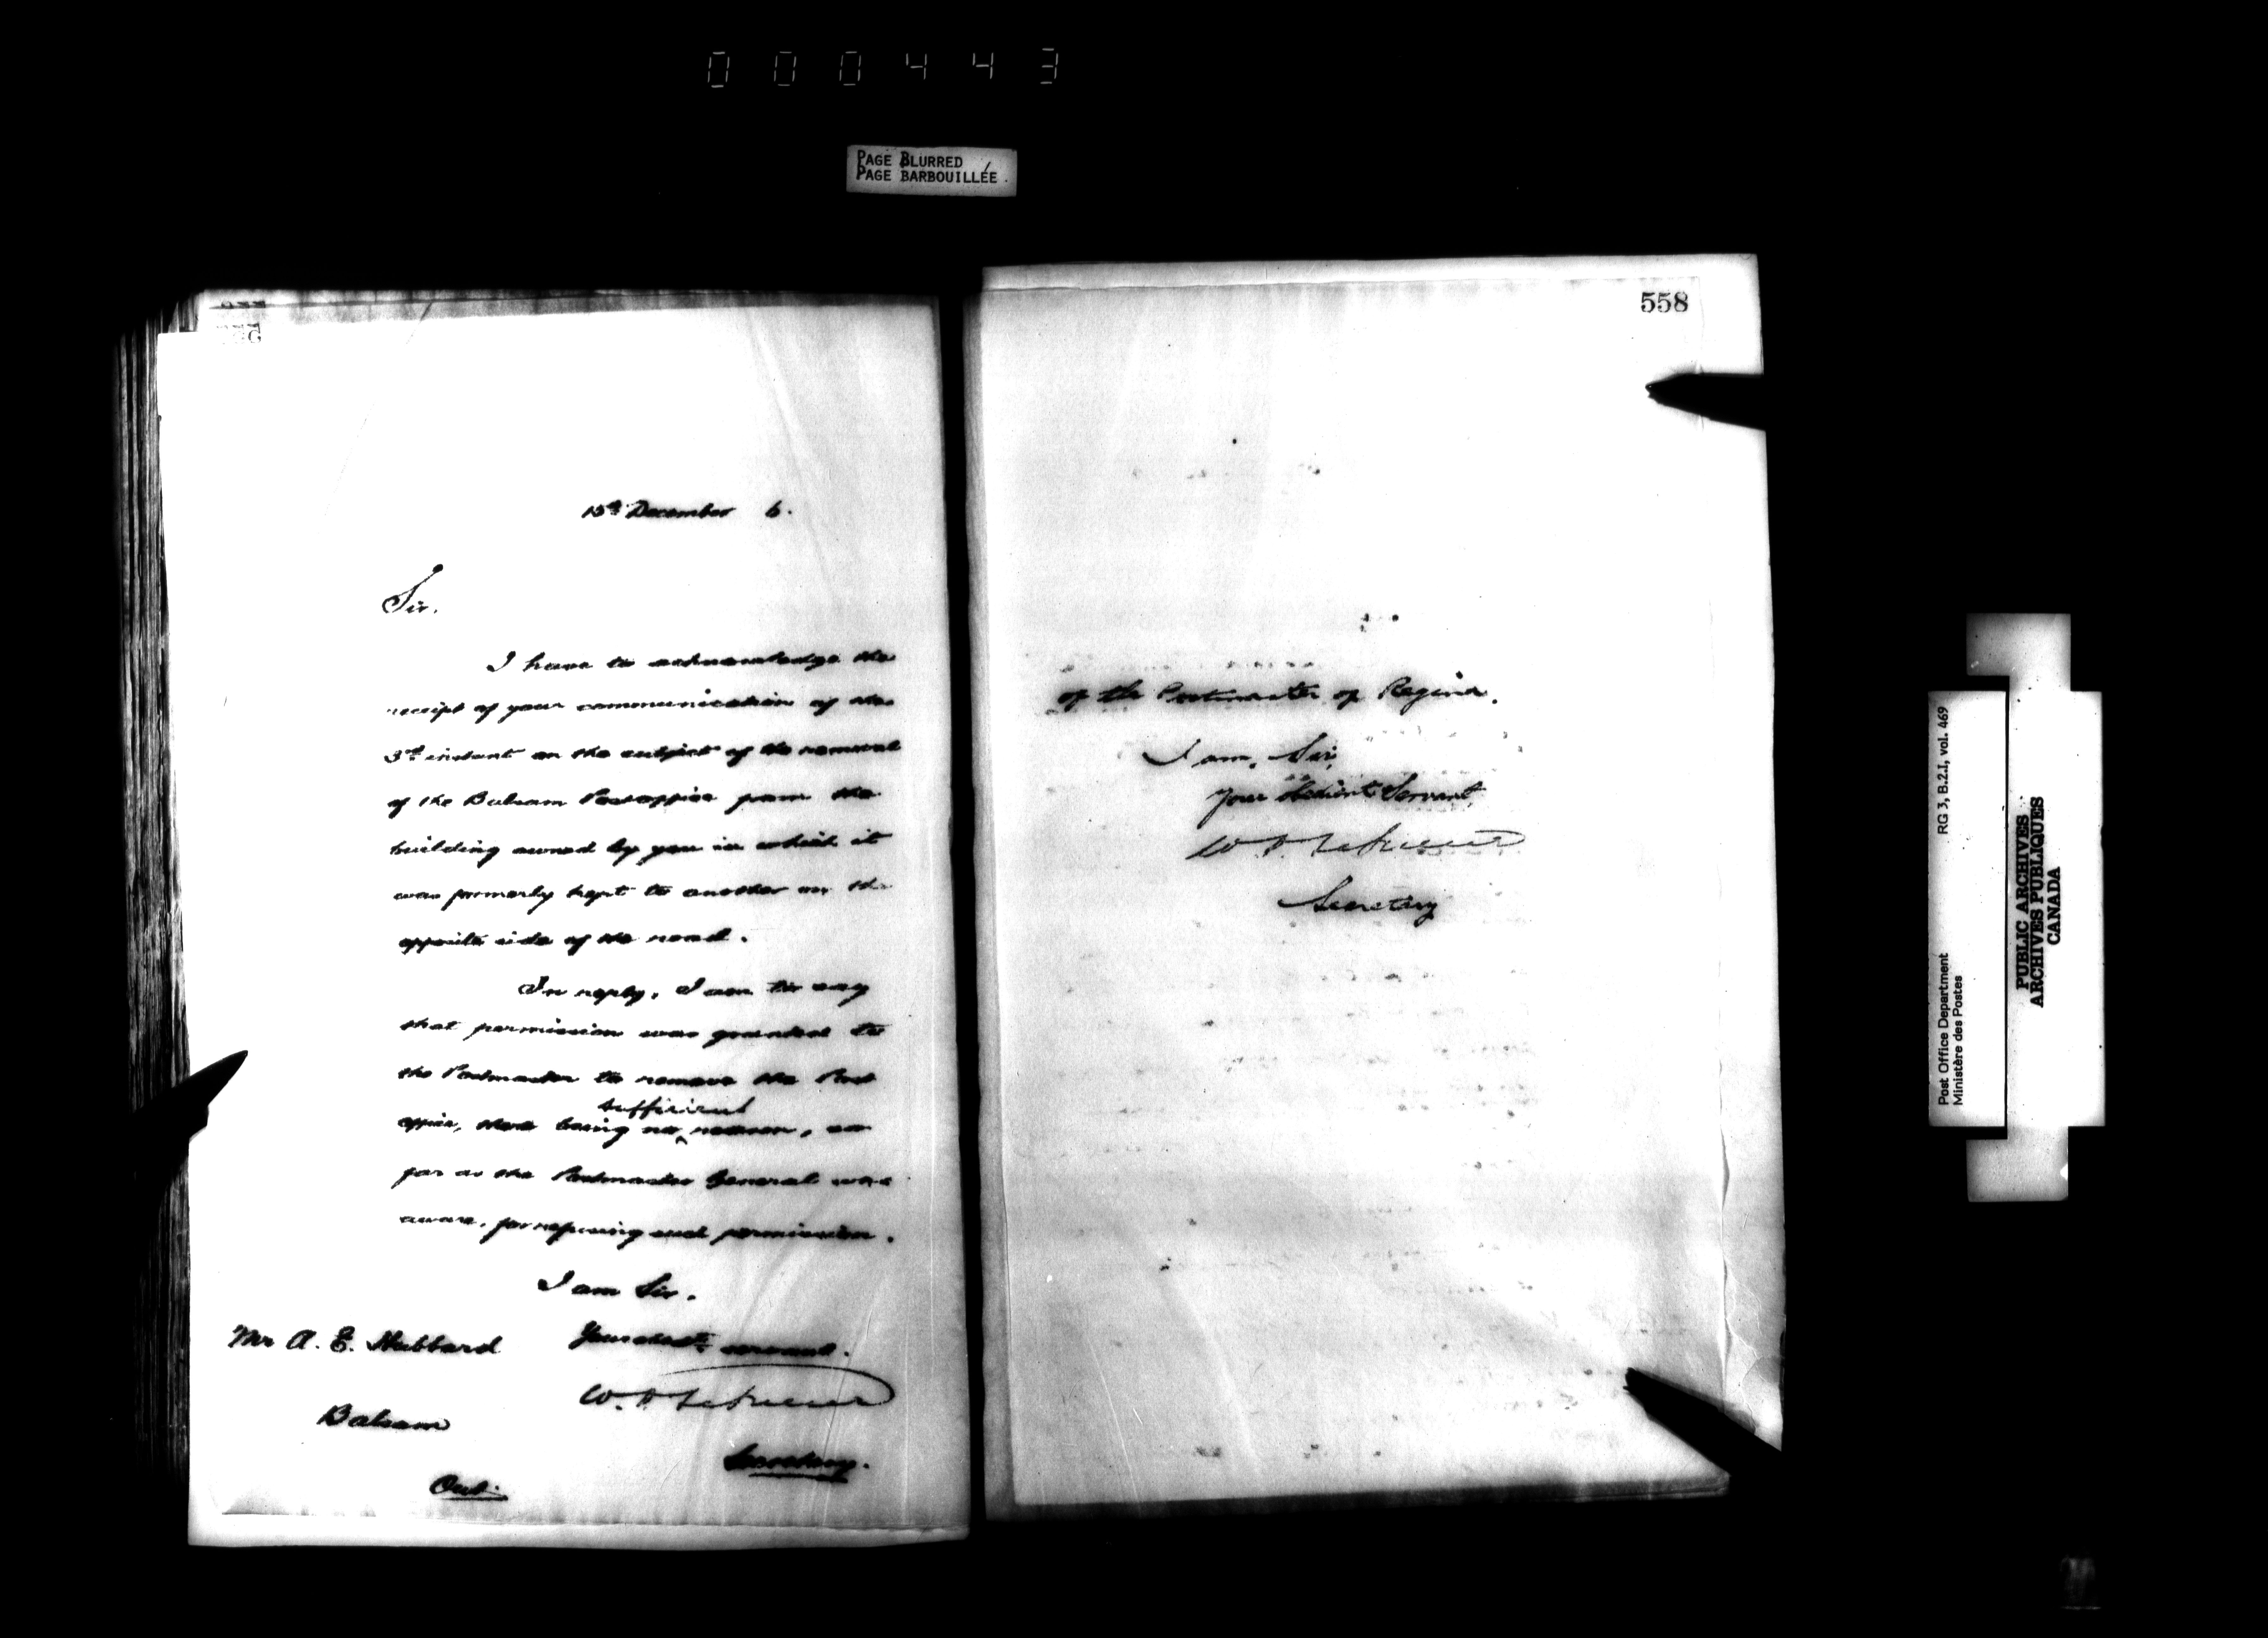 000443
PAGE BLURRED
PAGE BARBOUILLÉE
558
15th December 6.
Sir.
I have to acknowledge the
receipt of your communication of the
3rd instant on the subject of the removal
of the Balsam Post office from the
building owned by you in which it
was formerly kept to another on the
opposite side of the road.
In reply, I am to say
that permission was granted to
the Postmaster to remove the Post
sufficient
office, there being no ^ reason, so
far as the Postmaster General was
aware, for refusing such permission.
I am Sir.
Your obedt. servant.
Mr A. E. Hubbard
Secretary.
Balsam
Ont.
of the Postmaster of Regina.
I am, Sir,
Your Obedient Servant,
Secretary
Post Office Department
Ministère des Postes
RG 3, B.2.I, vol. 469
PUBLIC ARCHIVES
ARCHIVES PUBLIQUES
CANADA